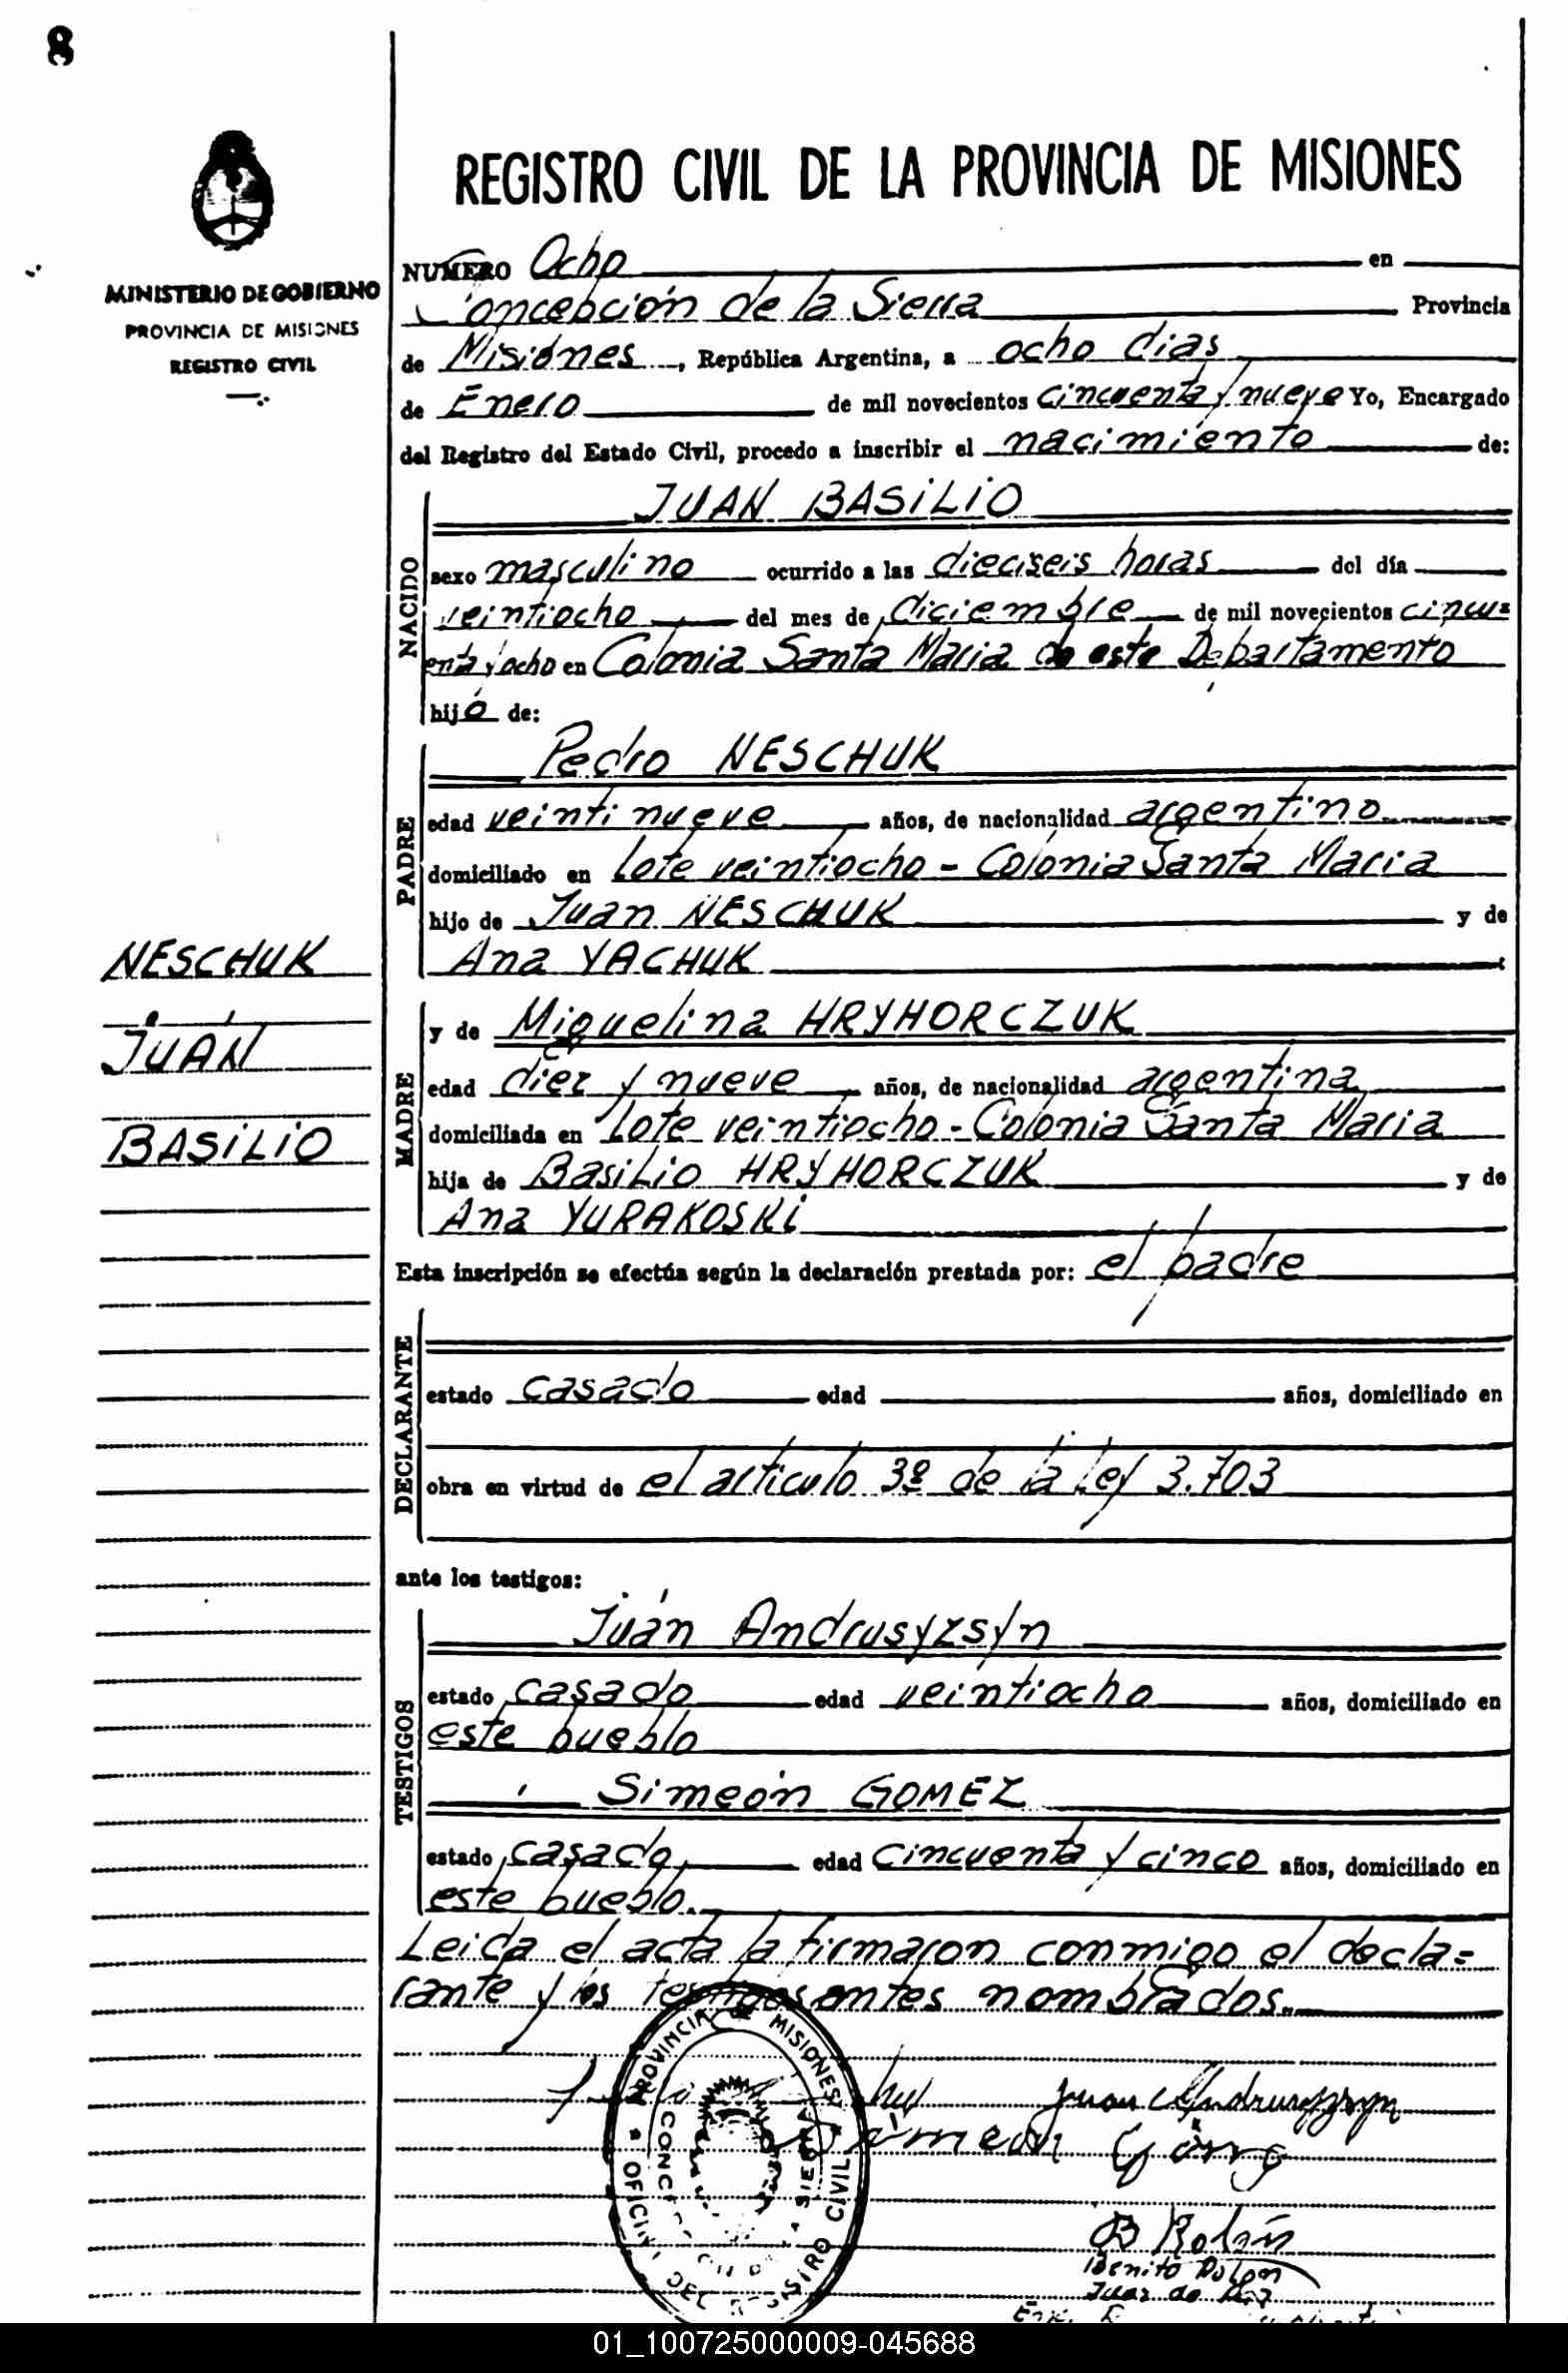 8
REGISTRO CIVIL DE LA PROVINCIA DE MISIONES
MINISTERIO DE GOBIERNO
PROVINCIA DE MISIONES
REGISTRO CIVIL
NUMERO Ocho en
Concepción de la Sierra Provincia
de Misiones, República Argentina, a ocho dias
de Enero de mil novecientos cincuenta y nueve Yo, Encargado
del Registro del Estado Civil, procedo a inscribir el nacimiento de:
NACIDO
JUAN BASILIO
sexo masculino ocurrido a las dieciseis horas del día
veintiocho del mes de diciembre de mil novecientos cincu=
enta y ocho en Colonia Santa Maria de este Departamento
hijo de:
PADRE
Pedro NESCHUK
edad veintinueve años, de nacionalidad argentino
domiciliado en Lote veintiocho - Colonia Santa Maria
hijo de Juan NESCHUK y de
Ana YACHUK
NESCHUK
JUAN
BASILIO
MADRE
y de Miguelina HRYHORCZUK
edad diez y nueve años, de nacionalidad argentina
domiciliada en Lote veintiocho - Colonia Santa Maria
hija de Basilio HRYHORCZUK y de
Ana YURAKOSKI
Esta inscripción se efectúa según la declaración prestada por: el padre
DECLARANTE
estado casado edad años, domiciliado en
obra en virtud de el articulo 3º de la Ley 3.703
ante los testigos:
TESTIGOS
Juán Andrusyzsyn
estado casado edad veintiocho años, domiciliado en
este pueblo
Simeón GOMEZ
estado casado edad cincuenta y cinco años, domiciliado en
este pueblo.
Leida el acta la firmaron conmigo el decla=
rante y los testigos antes nombrados.
PROVINCIA DE MISIONES
OFICINA DEL REGISTRO CIVIL
Juan
Simeon
B Rolón
Benito Rolon
Juez de Paz
01_100725000009-045688